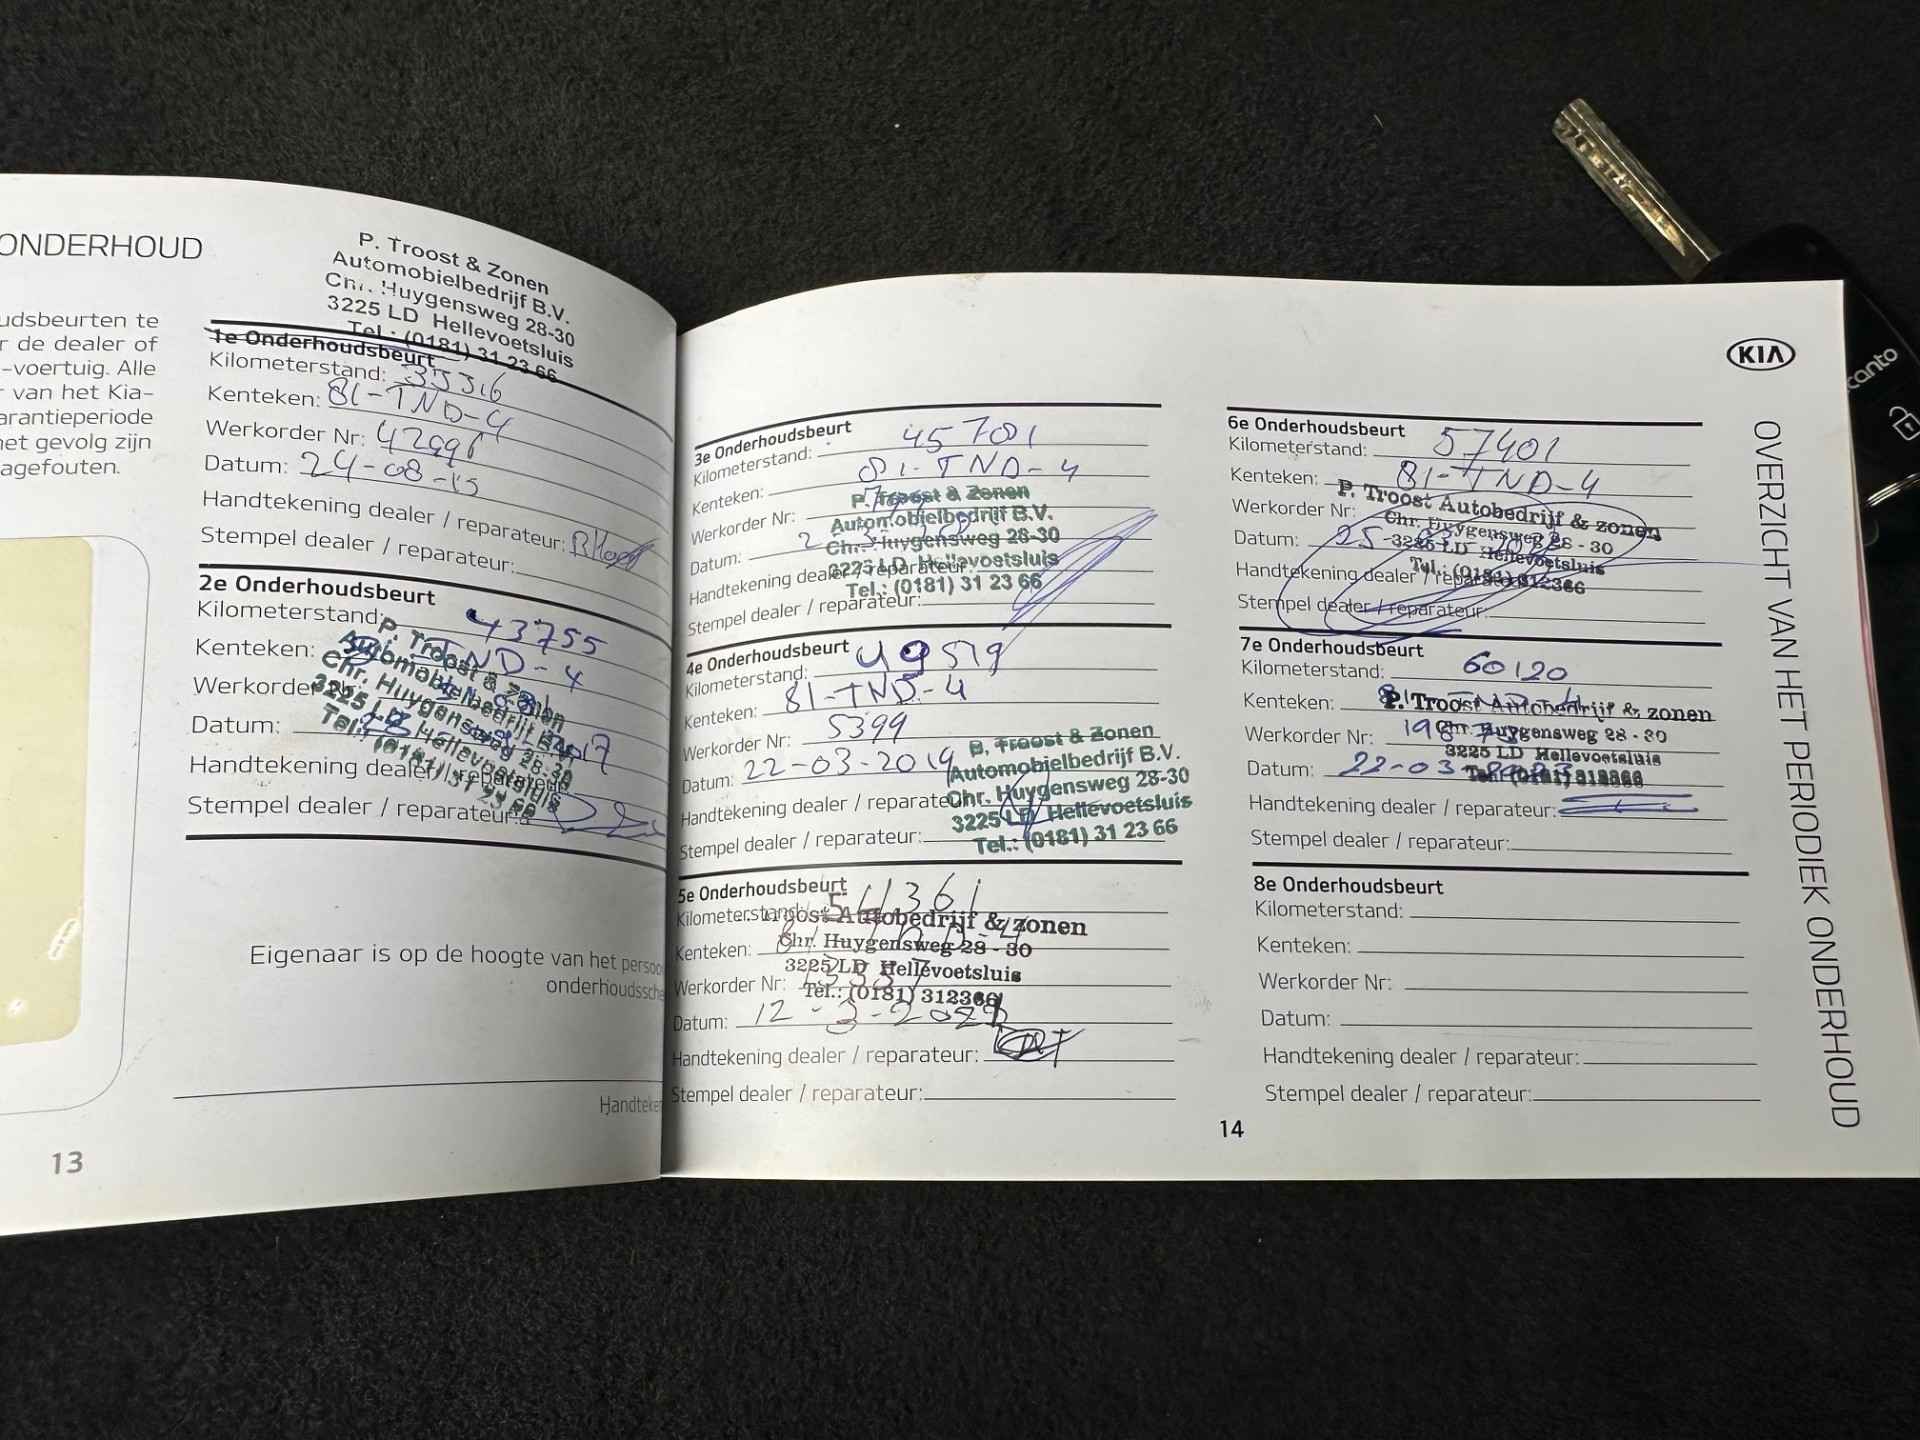 ONDERHOUD
udsbeurten te
r de dealer of
-voertuig. Alle
r van het Kia-
arantieperiode
net gevolg zijn
agefouten.
P. Troost & Zonen
Automobielbedrijf B.V.
Chr. Huygensweg 28-30
3225 LD Hellevoetsluis
Tel.: (0181) 31 23 66
1e Onderhoudsbeurt
Kilometerstand:
Kenteken: 81-TND-4
Werkorder Nr:
Datum: 24-08-15
Handtekening dealer / reparateur:
Stempel dealer / reparateur:
2e Onderhoudsbeurt
Kilometerstand: 43755
Kenteken: TND-4
Werkorder
Datum: 2017
Handtekening dealer / reparateur:
Stempel dealer / reparateur:
P. Troost & Zonen
Automobielbedrijf B.V.
Chr. Huygensweg 28-30
3225 LD Hellevoetsluis
Tel.: (0181) 31 23 66
Eigenaar is op de hoogte van het persoo
onderhoudssche
Handteken
13
3e Onderhoudsbeurt
Kilometerstand: 45701
Kenteken: 81-TND-4
Werkorder Nr:
Datum:
Handtekening dealer / reparateur:
Stempel dealer / reparateur:
P. Troost & Zonen
Automobielbedrijf B.V.
Chr. Huygensweg 28-30
3225 LD Hellevoetsluis
Tel.: (0181) 31 23 66
4e Onderhoudsbeurt
Kilometerstand: 49519
Kenteken: 81-TND-4
Werkorder Nr: 5399
Datum: 22-03-2019
Handtekening dealer / reparateur:
Stempel dealer / reparateur:
P. Troost & Zonen
Automobielbedrijf B.V.
Chr. Huygensweg 28-30
3225 LD Hellevoetsluis
Tel.: (0181) 31 23 66
5e Onderhoudsbeurt
Kilometerstand: 54361
Kenteken: 81-TND-4
Werkorder Nr:
Datum: 12-3-2021
Handtekening dealer / reparateur:
Stempel dealer / reparateur:
Troost Autobedrijf & zonen
Chr. Huygensweg 28 - 30
3225 LD Hellevoetsluis
Tel.: (0181) 312366
6e Onderhoudsbeurt
Kilometerstand: 57401
Kenteken: 81-TND-4
Werkorder Nr:
Datum: 25
Handtekening dealer / reparateur:
Stempel dealer / reparateur:
P. Troost Autobedrijf & zonen
Chr. Huygensweg 28 - 30
3225 LD Hellevoetsluis
Tel.: (0181) 312366
7e Onderhoudsbeurt
Kilometerstand: 60120
Kenteken: 81-TND-4
Werkorder Nr:
Datum: 22-03-
Handtekening dealer / reparateur:
Stempel dealer / reparateur:
P. Troost Autobedrijf & zonen
Chr. Huygensweg 28 - 30
3225 LD Hellevoetsluis
Tel.: (0181) 312366
8e Onderhoudsbeurt
Kilometerstand:
Kenteken:
Werkorder Nr:
Datum:
Handtekening dealer / reparateur:
Stempel dealer / reparateur:
14
KIA
OVERZICHT VAN HET PERIODIEK ONDERHOUD
canto